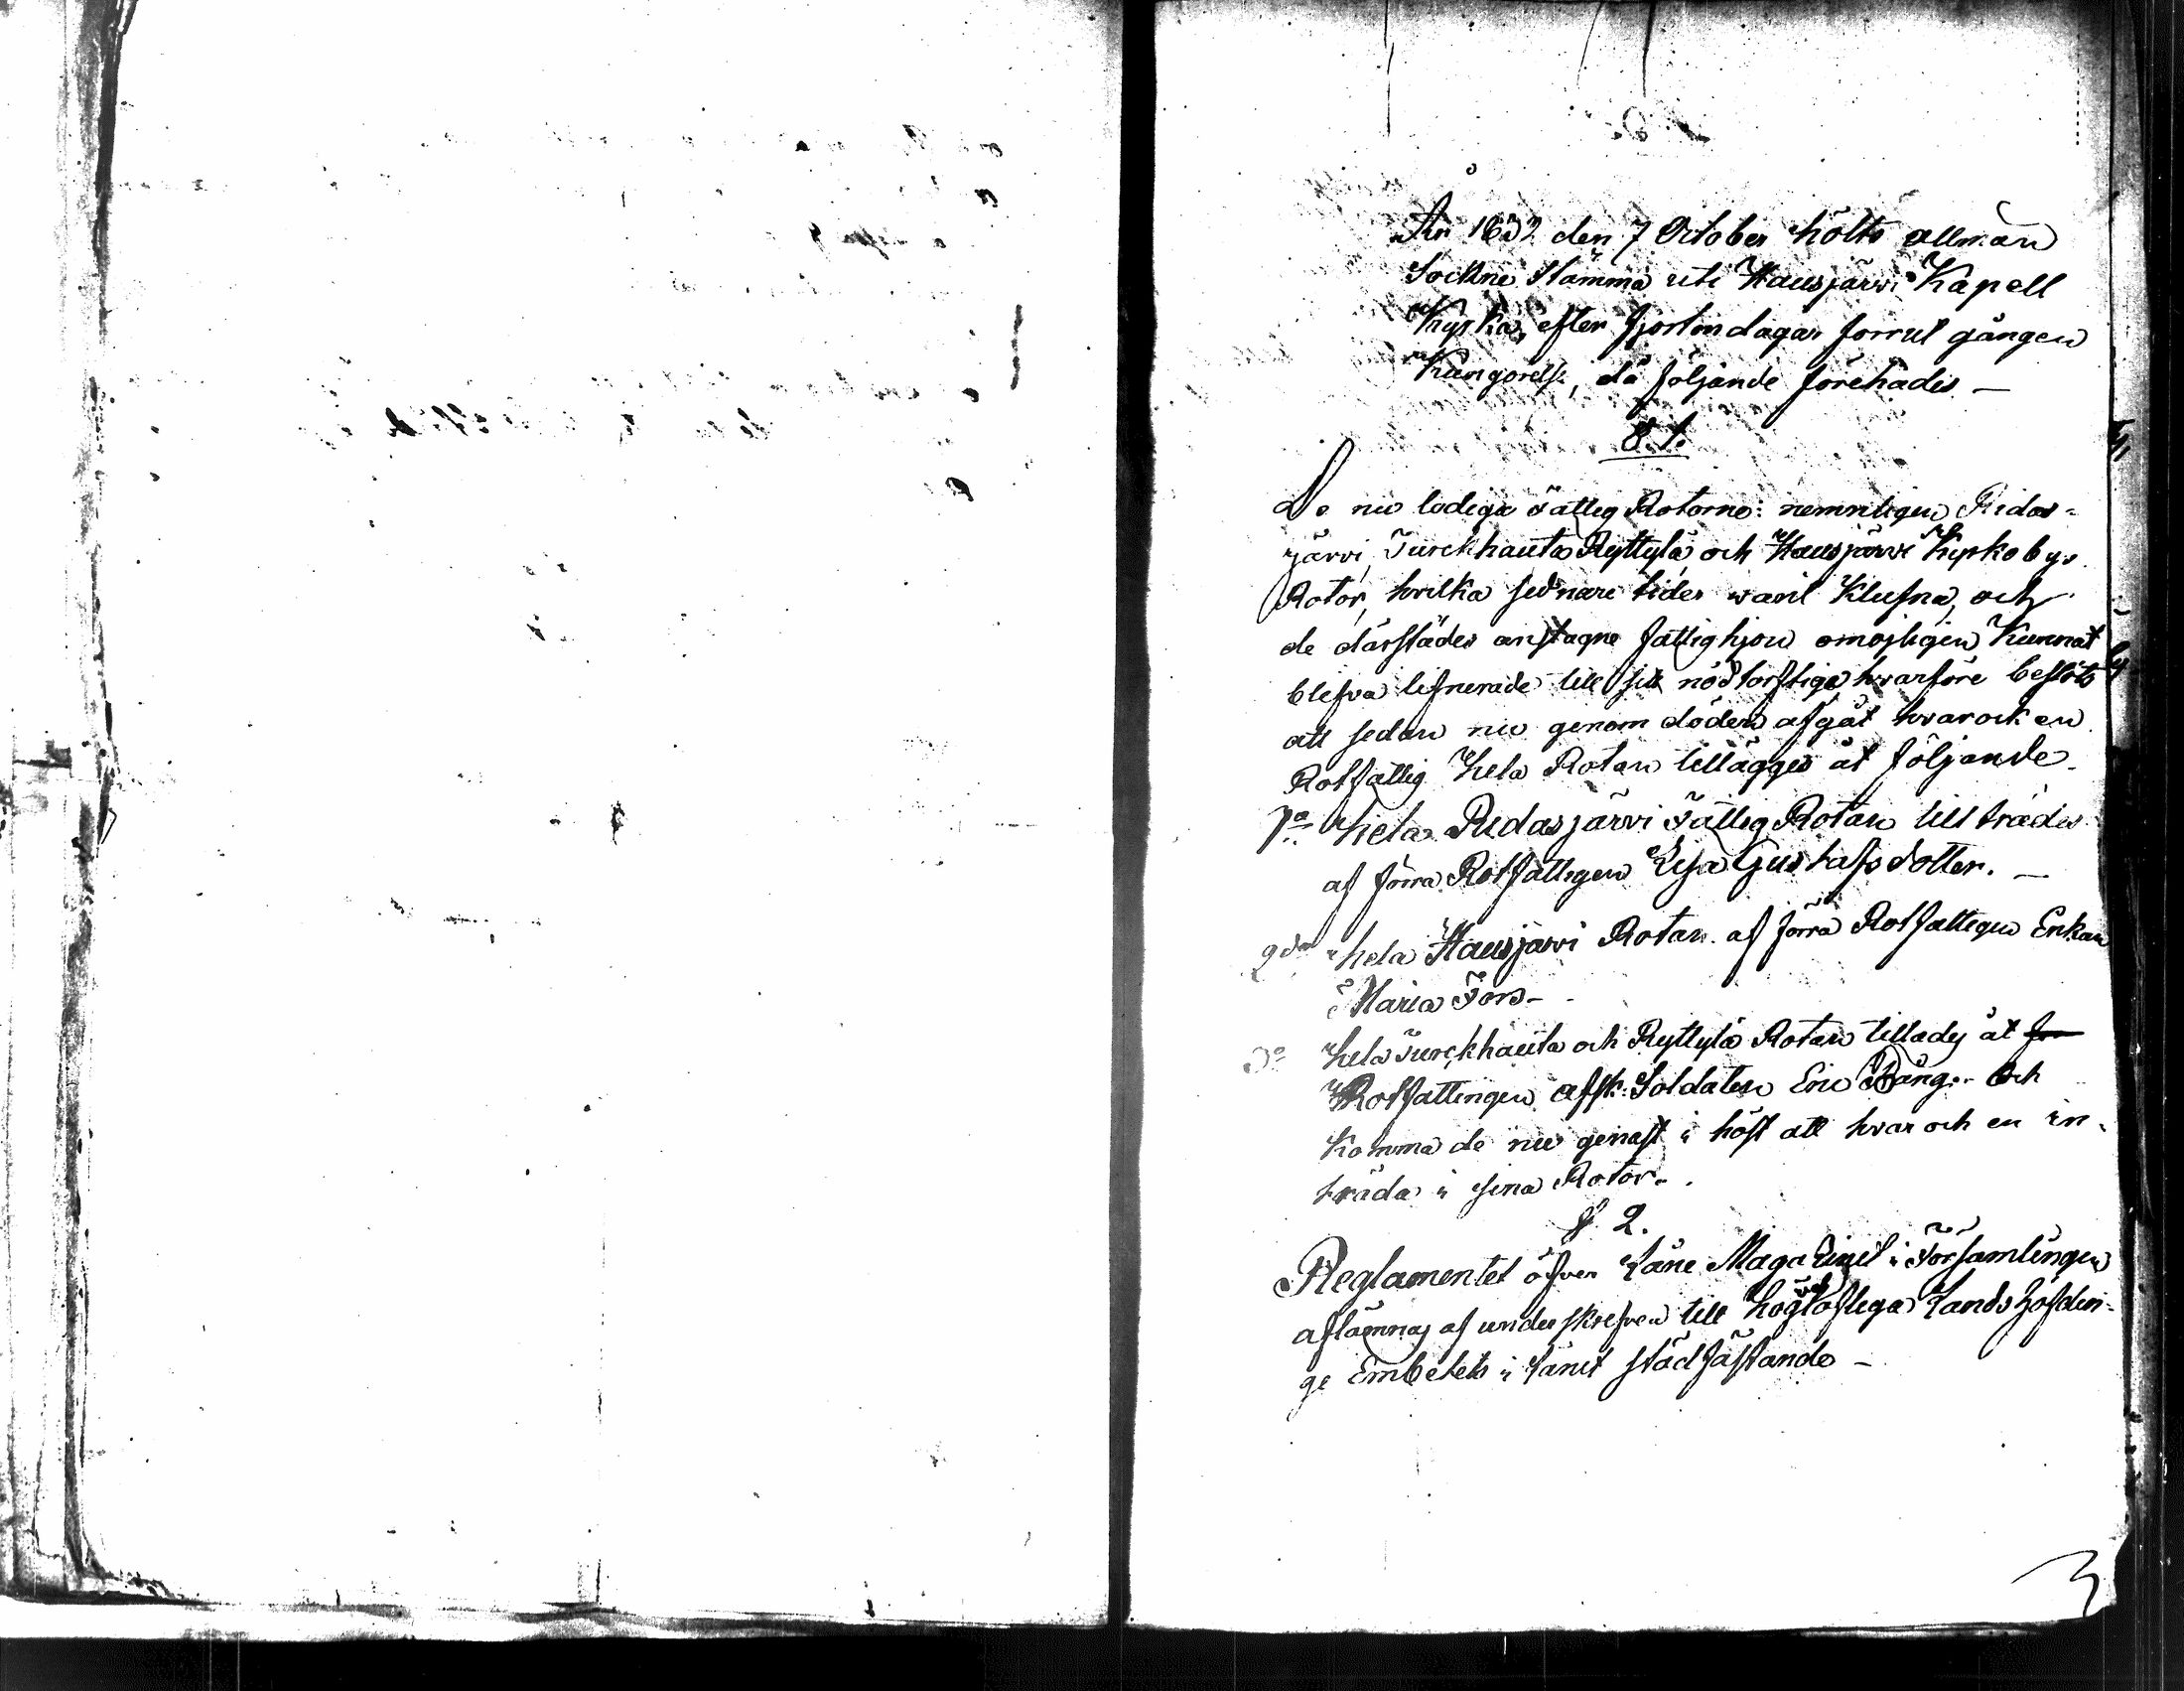 År 1832 den 7 October hölts allmän
Sockne Stämma uti Hausjärvi Kapell
Kyrka, efter fjortondagar forrut gången
Kungörelse, då följande förehades –
§. 1.
De nu lediga Fattig Rotorne: nemnligen Ridas-
järvi, Turckhauta Ryttylä, och Hausjärvi Kyrkobys
Rotor, hvilka sednare tider varit Klufna, och
de därstädes anstagne fattighjon omöjligen Kunnat
blefva lifnerade till sitt nödtorftiga, hvarföre beslöts
att sedan nu genom döden afgåt hvarock en
Rotfattig hela Rotan tillägges åt följande.
1o hela Ridasjärvi Fattig Rotan tillträdes
af förra Rotfattigen Lisa Gustafsdotter. –
2do hela Hausjärvi Rotan af förra Rotfattigen Enkan
Maria Fors –
3o hela Turckhauta och Ryttylä Rotan tillades åt
Rotfattingen afsk: Soldaten Eric Bång. – Och
Komma de nu genast i höst att hvar och en in-
träda i sina Rotor. –
§ 2.
Reglamentet öfver Låne Magazinet i Församlingen
aflämnas af underskrefven till Höglofliga Landshöfdin-
ge Embetets i Länet städfästande –
3